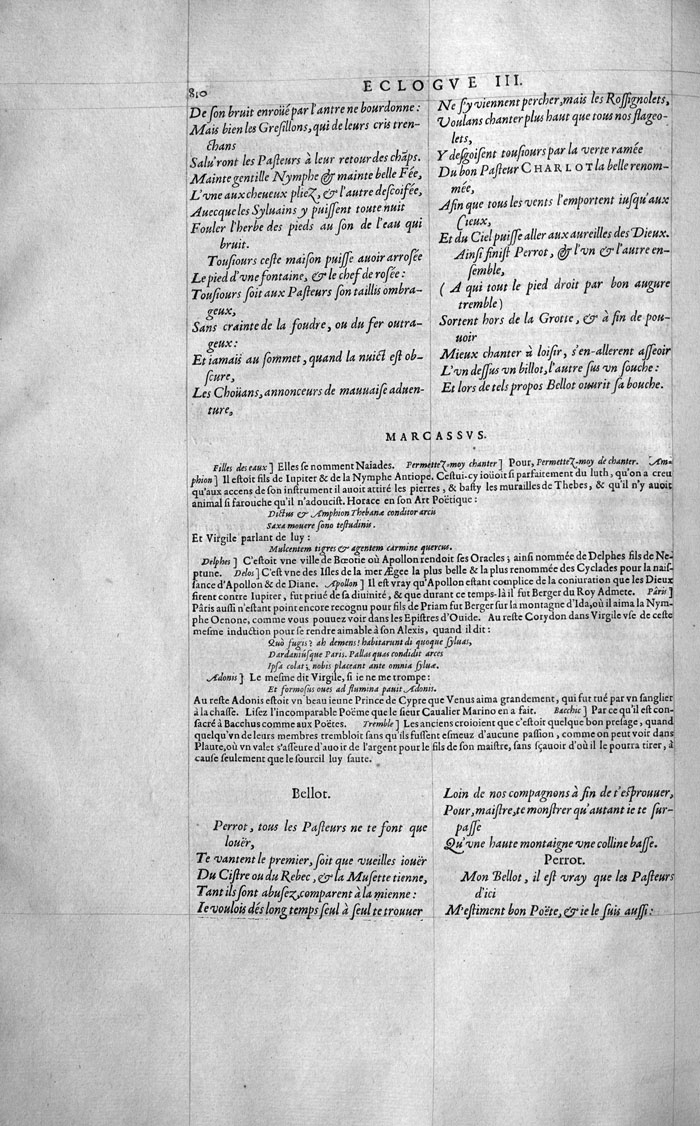 810
ECLOGVE III.
De ſon bruit enroüé par l'antre ne bourdonne:
Mais bien les Greſillons, qui de leurs cris tren-
chans
Salu'ront les Paſteurs à leur retour des chãps.
Mainte gentille Nymphe & mainte belle Fée,
L'vne aux cheueux pliez, & l'autre deſcoifée,
Auecque les Syluains y puiſſent toute nuit
Fouler l'herbe des pieds au ſon de l'eau qui
bruit.
Touſiours ceſte maiſon puiſſe auoir arroſée
Le pied d'vne fontaine, & le chef de roſée:
Touſiours ſoit aux Paſteurs ſon taillis ombra-
geux,
Sans crainte de la foudre, ou du fer outra-
geux:
Et iamais au ſommet, quand la nuict eſt ob-
ſcure,
Les Choüans, annonceurs de mauuaiſe aduen-
ture,
Ne ſ'y viennent percher, mais les Roſſignolets,
Voulans chanter plus haut que tous nos flageo-
lets,
Y deſgoiſent touſiours par la verte ramée
Du bon Paſteur CHARLOT la belle renom-
mée,
Afin que tous les vents l'emportent iuſqu'aux
Cieux,
Et du Ciel puiſſe aller aux aureilles des Dieux.
Ainſi finiſt Perrot, & l'vn & l'autre en-
ſemble,
( A qui tout le pied droit par bon augure
tremble)
Sortent hors de la Grotte, & à fin de pou-
uoir
Mieux chanter à loiſir, s'en-allerent aſſeoir
L'vn deſſus vn billot, l'autre ſus vn ſouche:
Et lors de tels propos Bellot ouurit ſa bouche.
MARCASSVS.
Filles des eaux ] Elles ſe nomment Naiades. Permettez-moy chanter ] Pour, Permettez-moy de chanter. Am-
phion ] Il eſtoit fils de Iupiter & de la Nymphe Antiope. Ceſtui-cy ioüoit ſi parfaitement du luth, qu'on a creu
qu'aux accens de ſon inſtrument il auoit attiré les pierres, & baſty les murailles de Thebes, & qu'il n'y auoit
animal ſi farouche qu'il n'adouciſt. Horace en ſon Art Poëtique:
Dictus & Amphion Thebanæ conditor arcis
Saxa mouere ſono teſtudinis.
Et Virgile parlant de luy:
Mulcentem tigres & agentem carmine quercus.
Delphes ] C'eſtoit vne ville de Bœotie où Apollon rendoit ſes Oracles; ainſi nommée de Delphes fils de Ne-
ptune. Delos ] C'eſt vne des Iſles de la mer Ægee la plus belle & la plus renommée des Cyclades pour la naiſ-
ſance d'Apollon & de Diane. Apollon ] Il eſt vray qu'Apollon eſtant complice de la coniuration que les Dieux
firent contre Iupiter, fut priué de ſa diuinité, & que durant ce temps-là il fut Berger du Roy Admete. Pâris ]
Pâris auſſi n'eſtant point encore recognu pour fils de Priam fut Berger ſur la montagne d'Ida, où il aima la Nym-
phe Oenone, comme vous pouuez voir dans les Epiſtres d'Ouide. Au reſte Corydon dans Virgile vſe de ceſte
meſme induction pour ſe rendre aimable à ſon Alexis, quand il dit:
Quò fugis? ah demens! habitarunt di quoque ſyluas,
Dardaniúſque Paris. Pallas quas condidit arces
Ipſa colat; nobis placeant ante omnia ſyluæ.
Adonis ] Le meſme dit Virgile, ſi ie ne me trompe:
Et formoſus oues ad flumina pauit Adonis.
Au reſte Adonis eſtoit vn beau ieune Prince de Cypre que Venus aima grandement, qui fut tué par vn ſanglier
à la chaſſe. Liſez l'incomparable Poëme que le ſieur Caualier Marino en a fait. Bacchic ] Par ce qu'il eſt con-
ſacré à Bacchus comme aux Poëtes. Tremble ] Les anciens croioient que c'eſtoit quelque bon preſage, quand
quelqu'vn de leurs membres trembloit ſans qu'ils fuſſent eſmeuz d'aucune paſſion, comme on peut voir dans
Plaute, où vn valet s'aſſeure d'auoir de l'argent pour le fils de ſon maiſtre, ſans ſçauoir d'où il le pourra tirer, à
cauſe ſeulement que le ſourcil luy ſaute.
Bellot.
Perrot, tous les Paſteurs ne te font que
louër,
Te vantent le premier, ſoit que vueilles iouër
Du Ciſtre ou du Rebec, & la Muſette tienne,
Tant ils ſont abuſez, comparent à la mienne:
Ie voulois dés long temps ſeul à ſeul te trouuer
Loin de nos compagnons à fin de t'eſprouuer,
Pour, maiſtre, te monſtrer qu'autant ie te ſur-
paſſe
Qu'vne haute montaigne vne colline baſſe.
Perrot.
Mon Bellot, il eſt vray que les Paſteurs
d'ici
M'eſtiment bon Poëte, & ie le ſuis auſſi: